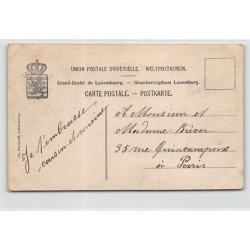 UNION POSTALE UNIVERSELLE. WELTPOSTVEREIN.
Grand-Duché de Luxembourg. — Grossherzogthum Luxemburg.
CARTE POSTALE. – POSTKARTE.
Je t'embrasse
cousin et
A Monsieur et
Madame Biever
35 rue Quincampoix
à Paris